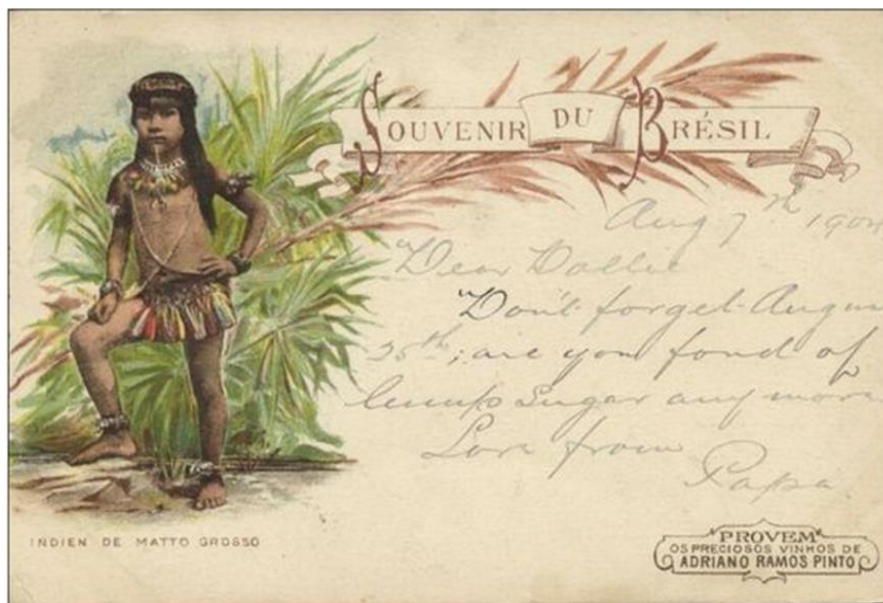 SOUVENIR DU BRÉSIL
Aug 7th 1904
"Dear Dollie
"Don't forget August
25th; are you fond of
lump Sugar any more
Love from
Papa
INDIEN DE MATTO GROSSO
PROVEM
OS PRECIOSOS VINHOS DE
ADRIANO RAMOS PINTO